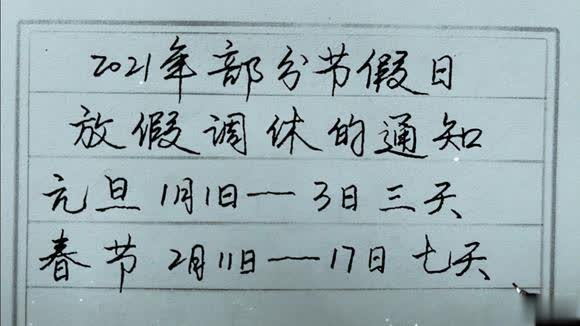 2021年部分节假日
放假调休的通知
元旦 1月1日——3日 三天
春节 2月11日——17日 七天